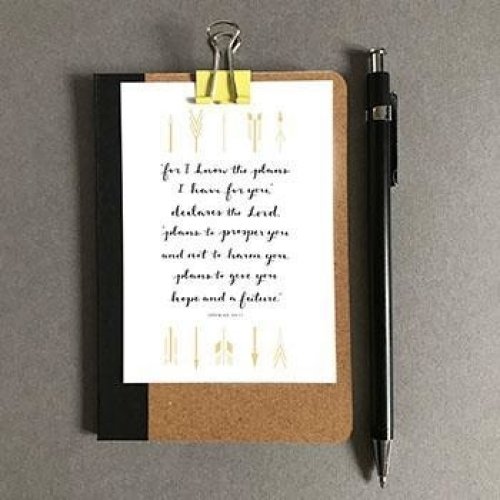 "for I know the plans
I have for you,"
declares the Lord,
"plans to prosper you
and not to harm you,
plans to give you
hope and a future."
JEREMIAH 29:11